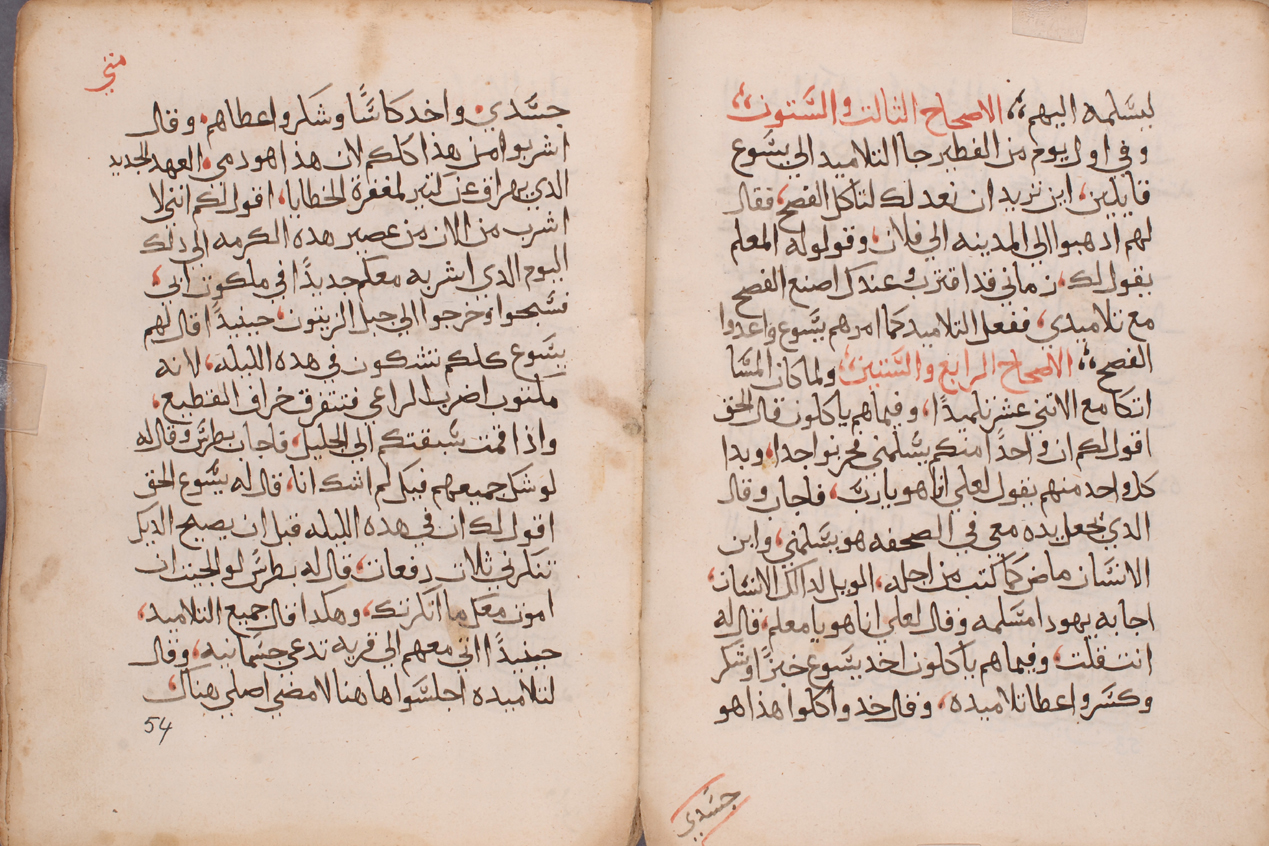 ليسلمه اليهم؛ الاصحاح الثالت والستون؛
وفي اول يوم من الفطير جا التلاميد الي يسوع
قايلين، اين تريد ان نعد لك لتاكل الفصح، فقال
لهم ادهبوا الي المدينه الي فلان، وقولوا له المعلم
يقول لك، زماني قد اقترب وعندك اصنع الفصح
مع تلاميدي، ففعل التلاميد كما امرهم يسوع واعدوا
الفصح؛ الاصحاح الرابع والستين؛ ولما كان المسا
اتكا مع الاتني عشر تلميدًا، وفيما هم ياكلون قال الحق
اقول لكم ان واحدًا منكم يسلمني فحزنوا جدا، وبدا
كل واحد منهم يقول لعلي انا هو يا رب، فاجاب وقال
الدي يجعل يده معي في الصحفه هو يسلمني، وابن
الانسان ماض كما كتب من اجله، الويل لدالك الانسان،
اجابه يهودا مسلمه وقال لعلي انا هو يا معلم، قال له
انت قلت، وفيما هم ياكلون اخد يسوع خبزًا وشكر
وكسر واعطا تلاميده، وقال خدوا كلوا هذا هو
جسدي
متي
جسدي، واخد كاسًا وشكر واعطاهم، وقال
اشربوا من هذا كلكم لان هذا هو دمي، العهد الجديد
الدي يهراق عن كتير لمغفرة الخطايا، اقول لكم انني لا
اشرب من الان من عصير هده الكرمه الي دلك
اليوم الدي اشربه معكم جديدًا في ملكوت ابي،
فسبحوا وخرجوا الي جبل الزيتون، حينيدًا قال لهم
يسوع كلكم تشكون في هده الليله، لانه
مكتوب اضرب الراعي فتتفرق خراف القطيع،
واذا قمت سبقتكم الي الجليل، فاجاب بطرس وقال له
لو شك جميعهم فيك لم اشك انا، قال له يسوع الحق
اقول لك ان في هده الليله قبل ان يصيح الديك
تنكرني تلات دفعات، قال له بطرس لو الجيت ان
اموت معك ما انكرتك، وهكدا قال جميع التلاميد،
حينيدًا اتي معهم الي قريه تدعي جسمانيه، وقال
لتلاميده اجلسوا هاهنا لامضي اصلي هناك،
54